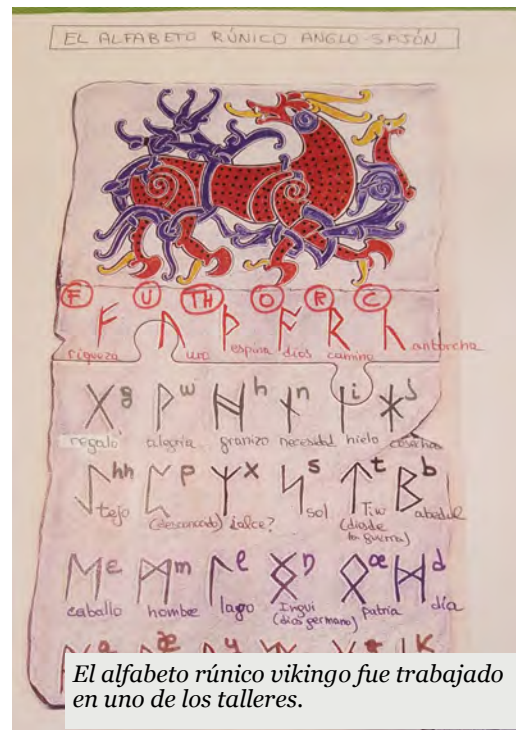 EL ALFABETO RÚNICO ANGLO-SAJÓN
F U TH O R C
ᚠ ᚢ ᚦ ᚩ ᚱ ᚳ
riqueza uro espina dios camino antorcha
ᚷ g ᚹ w ᚻ h ᚾ n ᛁ i ᛡ j
regalo alegría granizo necesidad hielo cosecha
ᛇ hh ᛈ p ᛉ x ᛋ s ᛏ t ᛒ b
tejo (desconocido) ¿alce? sol Tiw abedul
(dios de
la guerra)
ᛖ e ᛗ m ᛚ l ᛝ ŋ ᛟ œ ᛞ d
caballo hombre lago Ingui patria día
(dios germano)
a æ y K
El alfabeto rúnico vikingo fue trabajado
en uno de los talleres.